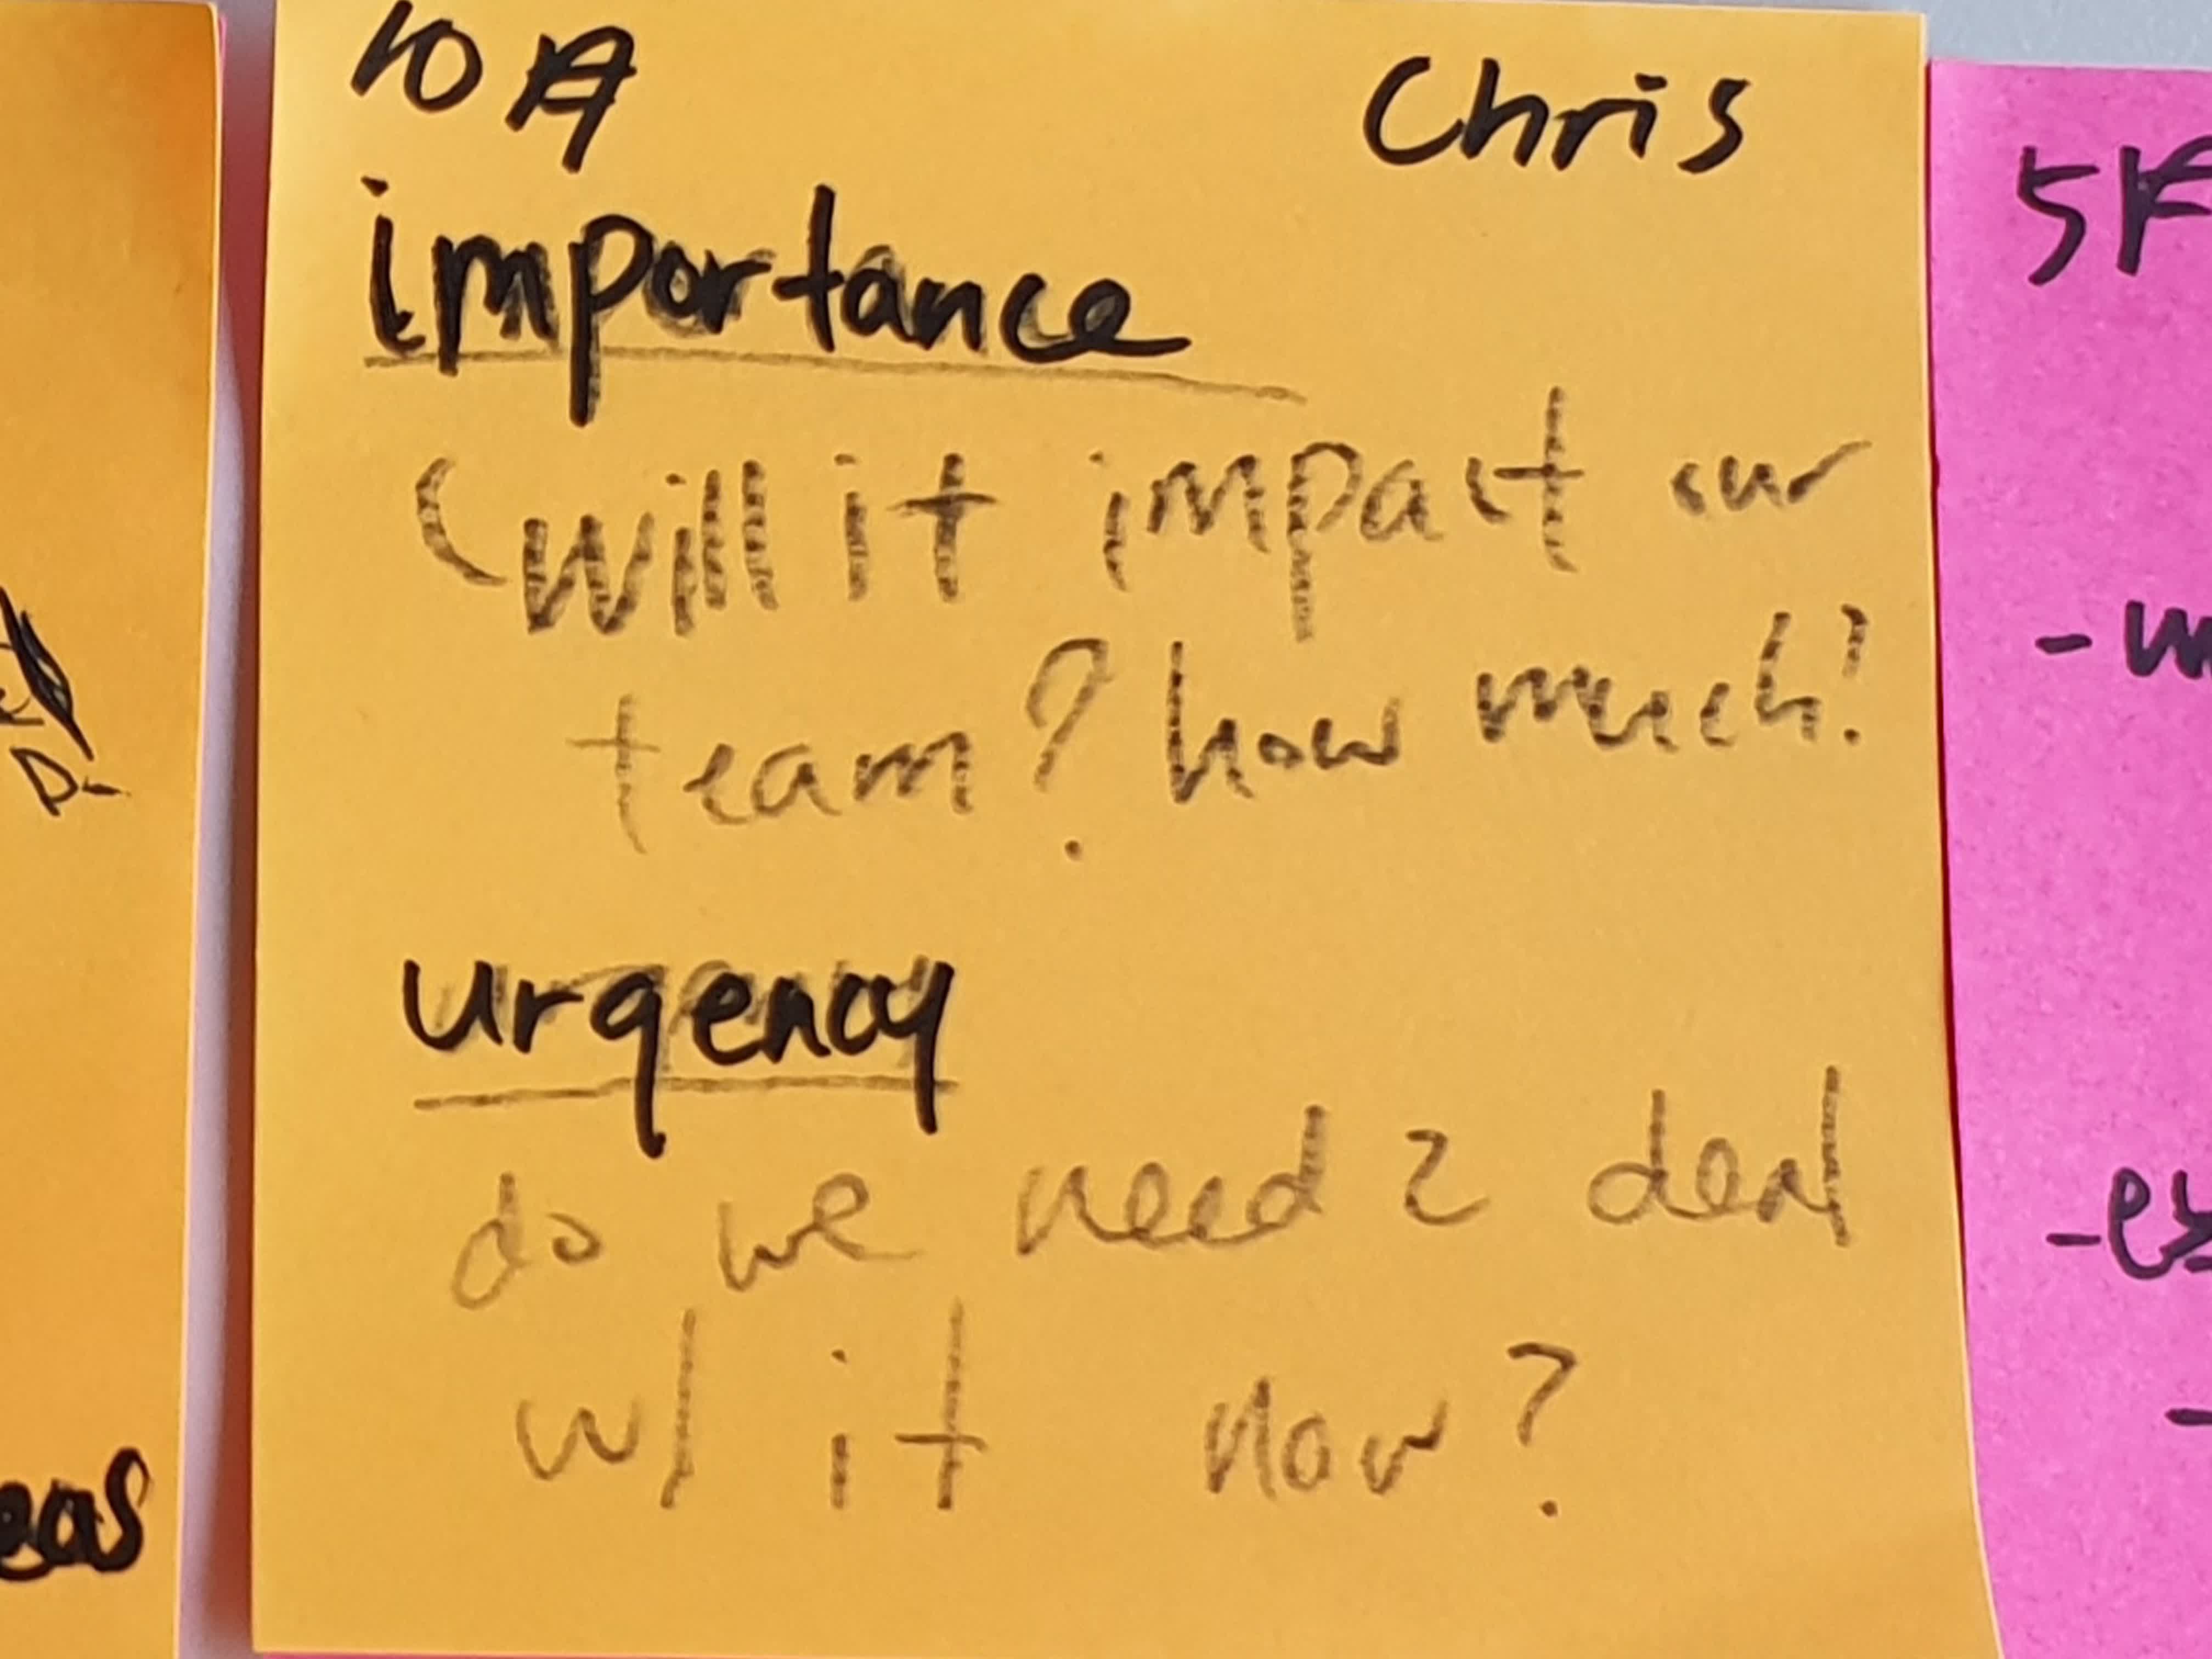 10A
Chris
importance
(will it impact our
team? how much?
urgency
do we need 2 deal
w/ it now?
eas